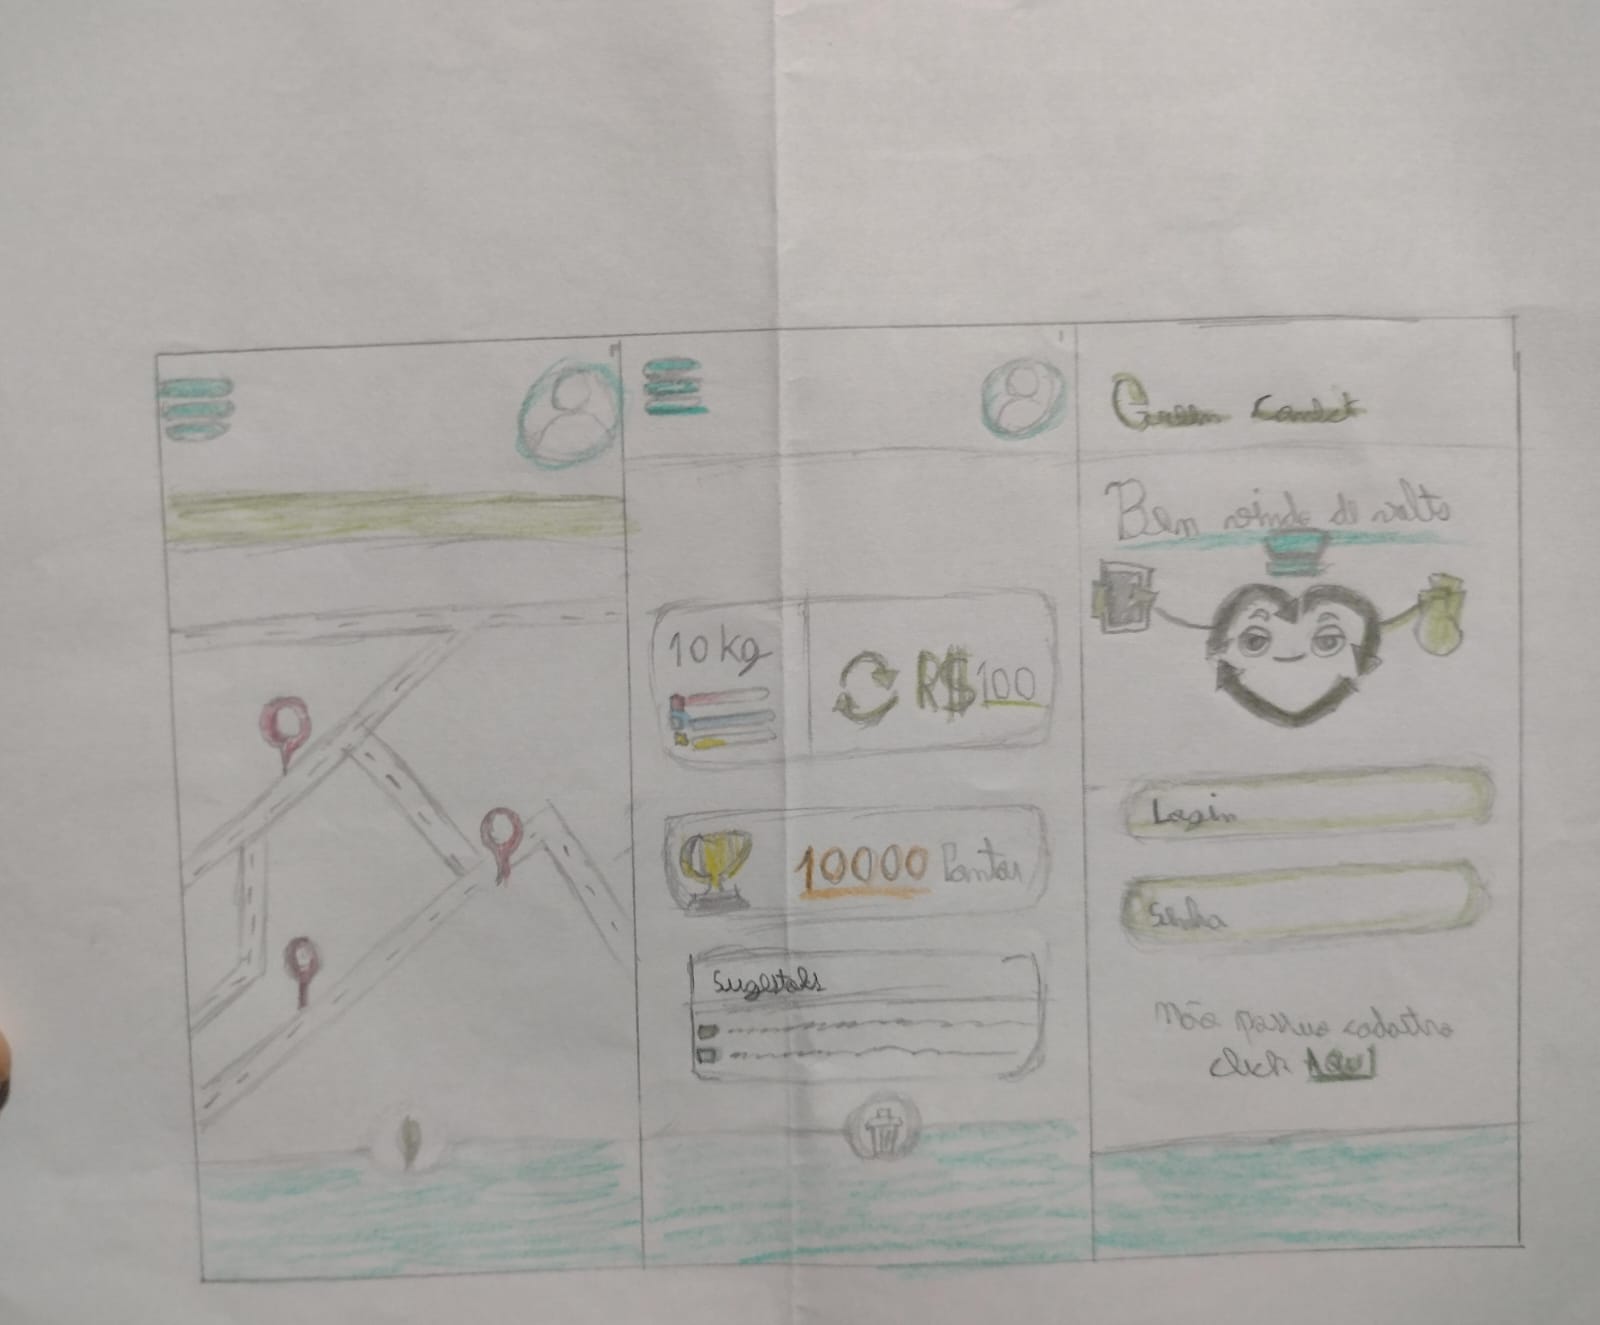 10 kg
R$ 100
10000 Pontos
Sugestões
Green
Bem vindo de volta
Login
Senha
Não possue cadastro
click AQUI